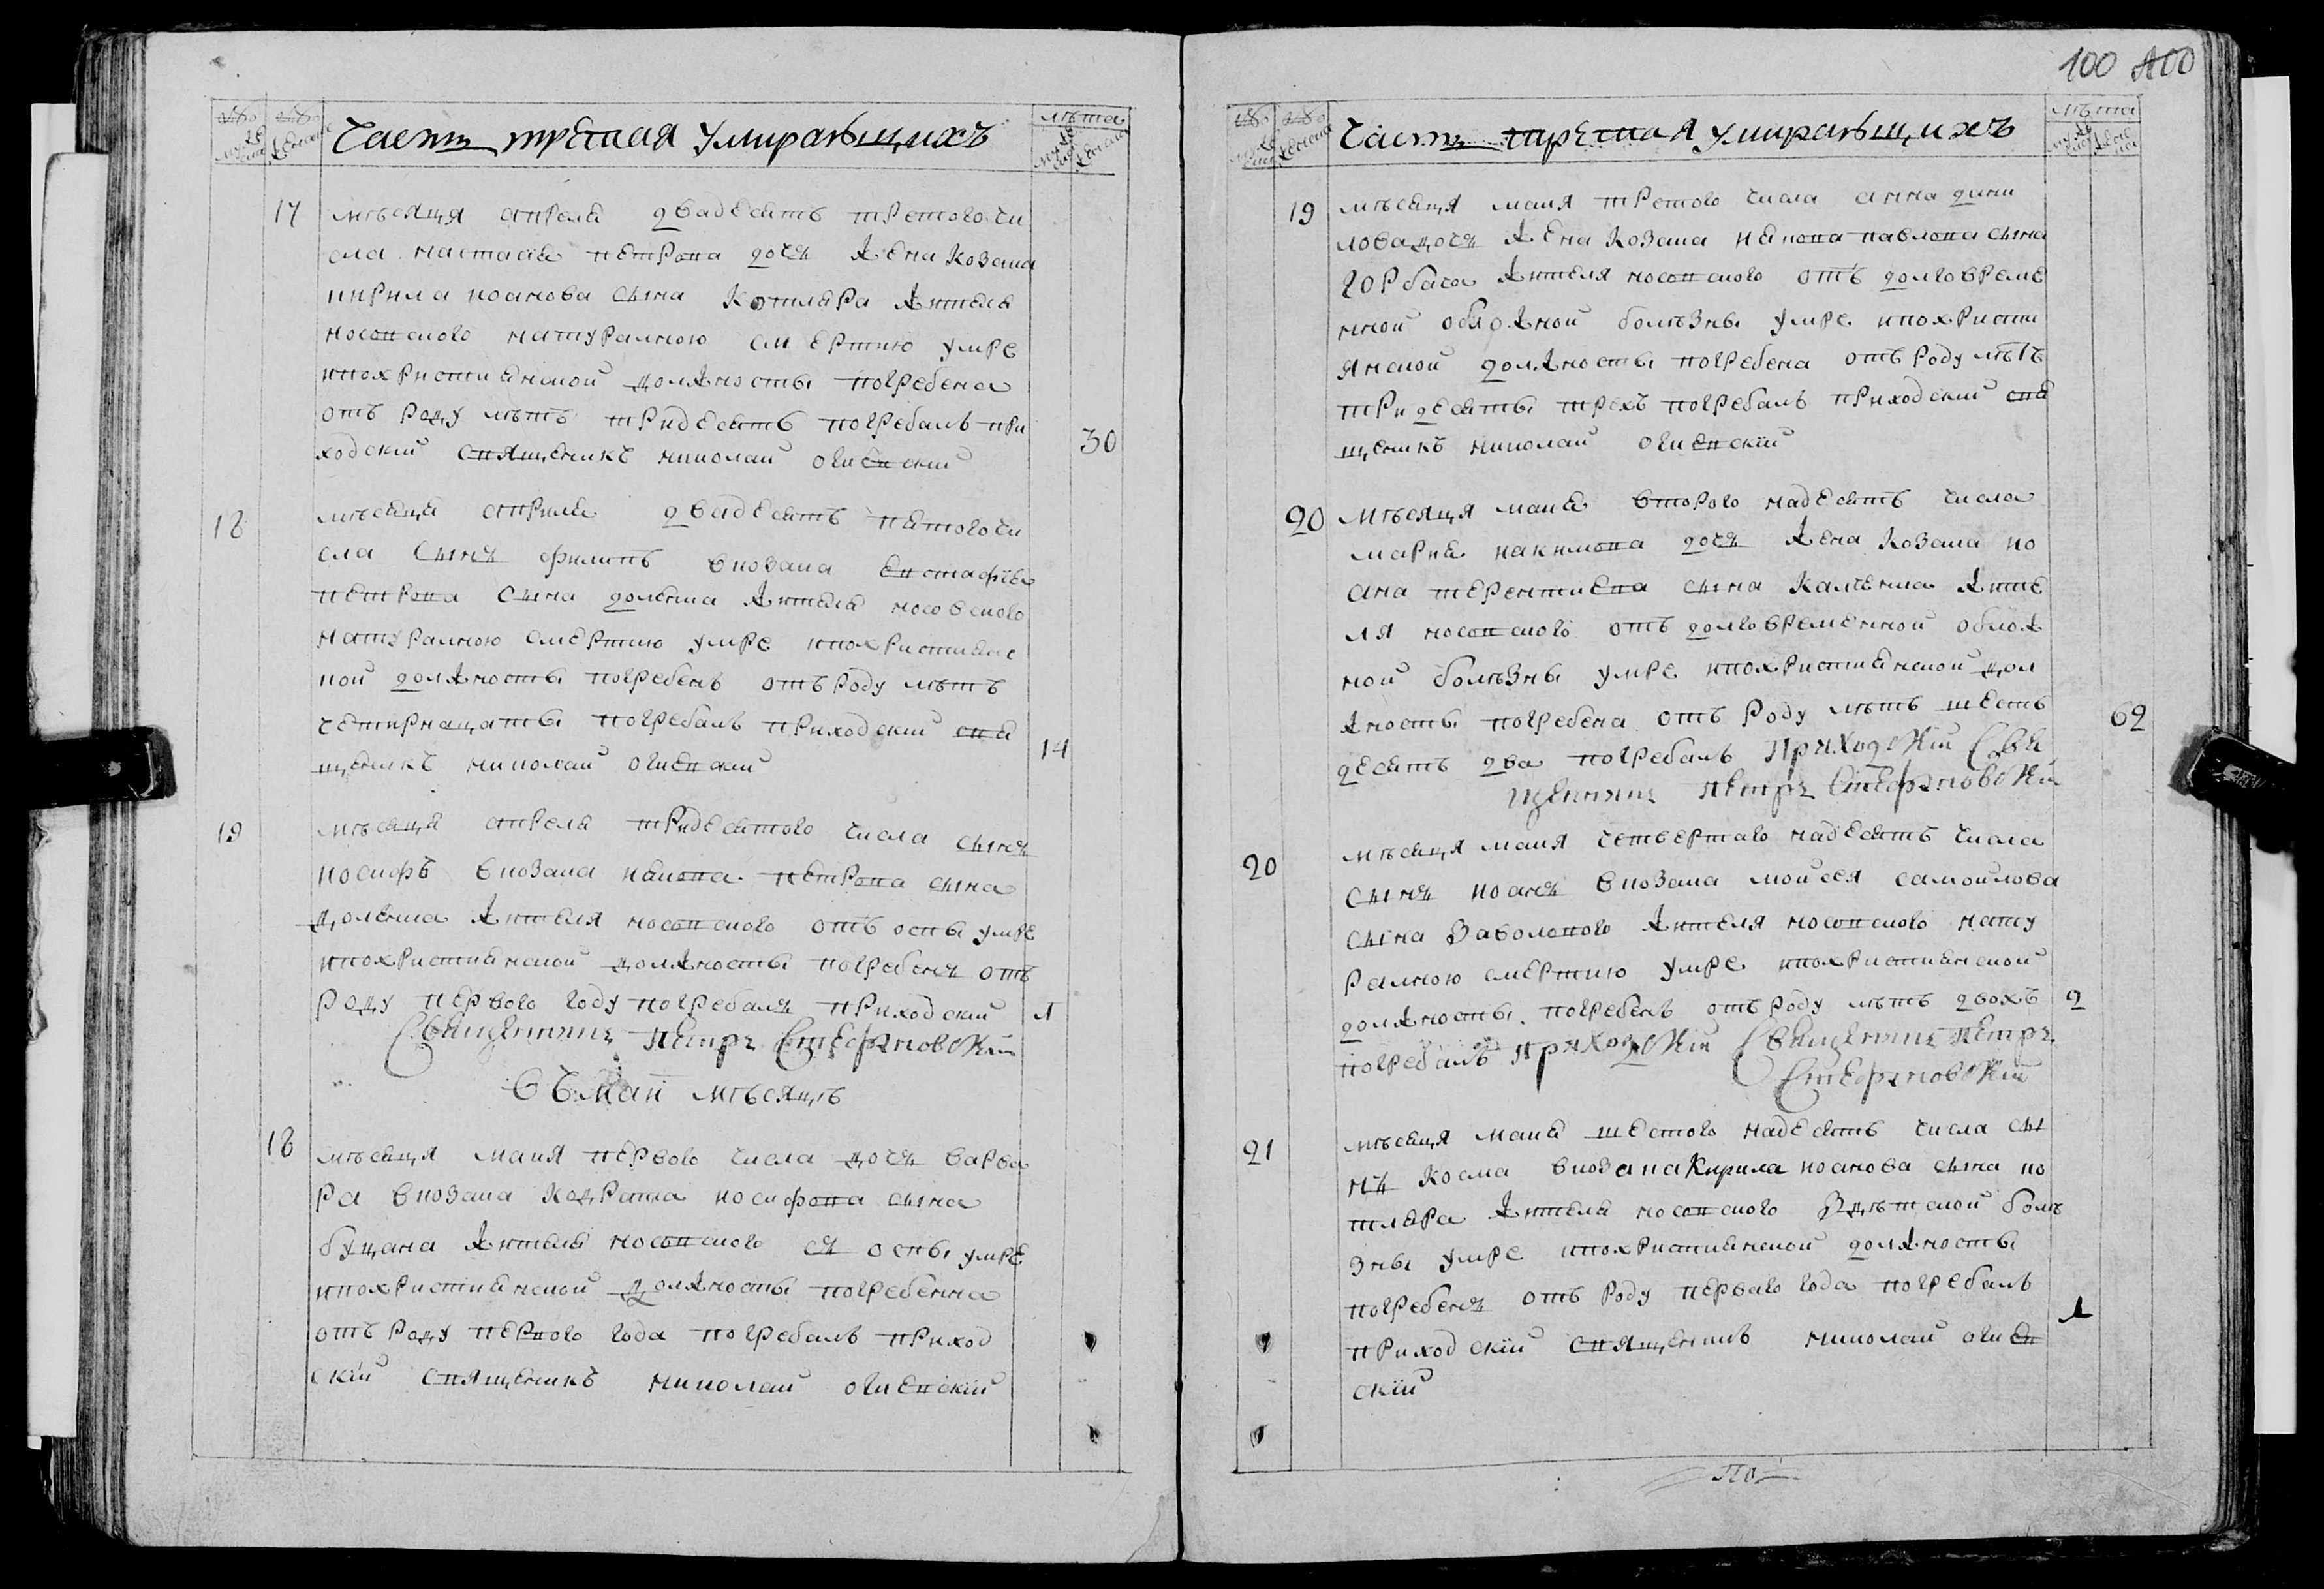 № мужеска
№ женска
Часть третая умиравшихъ
лѣта
мужеска
женска
17
мѣсяця апреля двадесять третого чи
сла настасія петрова дочъ жена козака
кирила иоанова сына котляра жителя
носовского натуралною смертию умре
ипохристиянской должносты погребена
отъ роду лѣтъ тридесять погребалъ при
30
ходский священикъ николай огиевский
18
мѣсяця априля двадесять пятого чи
сла сынъ филипъ вкозака евстафѣя
петрова сына доленка жителя носовского
натуралною смертию умре ипохристиянс
кой должносты погребенъ отъ роду лѣтъ
четирнацаты погребалъ приходский свя
14
щеникъ николай огиевский
19
мѣсяця апреля тридесятого числа сынъ
иосифъ вкозака якова петрова сына
доленка жителя носовского отъ оспы умре
ипохристиянской должносты погребенъ отъ
роду первого году погребалъ приходский
1
Священникъ Петръ Стефановский
Въ май мѣсяцъ
18
мѣсяця мая первого числа дочъ варва
ра вкозака кодрата иосифова сына
буцана жителя носовского съ оспы умре
ипохристиянской должносты погребенна
отъ роду первого года погребалъ приход
ский священикъ николай огиевский
100 100
№ мужеска
№ женска
Часть третая умиравшихъ
лѣта
мужеска
женска
19
мѣсяця мая третого числа анна дани
лова дочъ жена козака якова павлова сына
горбача жителя носовского отъ долговреме
нной обложной болѣзны умре ипохристи
янской должносты погребена отъ роду лѣтъ
тридесяты трехъ погребалъ приходский свя
щеникъ николай огиевский
20
мѣсяця мая второго надесять числа
мария якимова дочъ жена козака ио
ана терентиева сына калченка жите
ля носовского отъ долговременной облож
ной болѣзны умре ипохристиянской дол
жносты погребена отъ роду лѣтъ шесть
62
десять два погребалъ приходский Свя
щенникъ Петръ Стефановский
20
мѣсяця мая четвертаго надесять числа
сынъ иоанъ вкозака мойсея самойлова
сына заволокого жителя носовского нату
ралною смертию умре ипохристиянской
должносты погребенъ отъ роду лѣтъ двохъ
2
погребалъ приходский Священникъ Петръ
Стефановский
21
мѣсяця мая шестого надесять числа сы
нъ косма вкозака Кирила иоанова сына ко
тляра жителя носовского здѣтской болѣ
зны умре ипохристиянской должносты
погребенъ отъ роду перваго года погребалъ
1
приходский священикъ николай огиев
ский